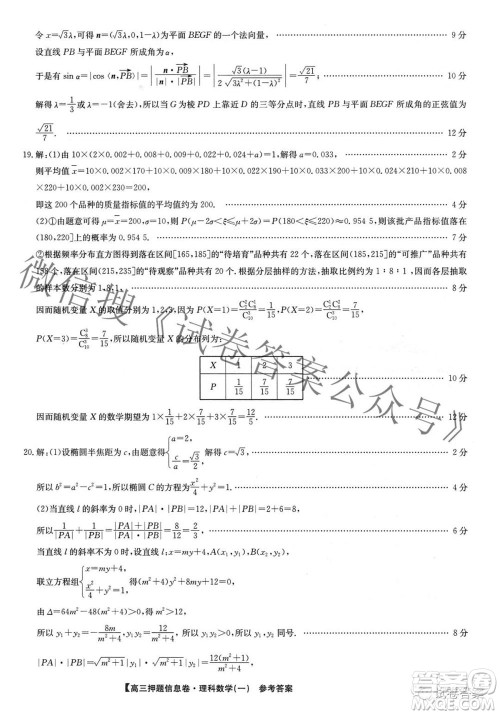 令 x=√3λ,n=(√3λ,0,1-λ)为平面 BEGF 的一个法向量, 9 分
设直线 PB 与平面 BEGF 所成角为 α,
于是有 sin α=|cos⟨n,PB⟩|=|n·PB/(|n|·|PB|)|=|√3(λ-1)/(2√(3λ²+(1-λ)²))|=√21/7, 10 分
解得 λ=1/3 或 λ=-1(舍去),所以当 G 为棱 PD 上靠近 D 的三等分点时,直线 PB 与平面 BEGF 所成角的正弦值为
√21/7. 12 分
19.解:(1)由 10×(2×0.002+0.008+0.009+0.022+0.024+a)=1,解得 a=0.033, 2 分
则平均值 x=10×0.002×170+10×0.009×180+10×0.022×190+10×0.033×200+10×0.024×210+
10×0.008×220+10×0.002×230=200.
即这 200 个品种的质量指标值的平均值约为 200. 4 分
(2)①由题意可得 μ=x=200,σ=10,则 P(μ-2σ<ξ≤μ+2σ)≈0.954 5,所以此批大蒜品种的质量指标值在
(180,220]上的概率为 0.954 5. 7 分
②由频率分布直方图得落在区间[165,185]的“待培育”品种共有 22 个,落在区间(185,215]的“可推广”品种共有
158 个,落在区间(215,235]的“优质”品种共有 20 个.根据分层抽样的方法,抽取比例为 1∶8∶1,所以每组抽取
的样本数分别为 1,8,1. 8 分
因而随机变量 X 的取值分别为 1,2,3.因为 P(X=1)=1/15,P(X=2)=7/15,
P(X=3)=7/15.所以随机变量 X 的分布列为
X 1 2 3
P 1/15 7/15 7/15
10 分
因而随机变量 X 的数学期望为 1×1/15+2×7/15+3×7/15=12/5. 12 分
20.解:(1)设椭圆半焦距为 c,由题意可得 {c=√3, c/a=√3/2, 解得 {c=√3, a=2, 2 分
所以 b²=a²-c²=1,所以椭圆 C 的标准方程为 x²/4+y²=1. 4 分
(2)当直线 l 的斜率为 0 时,设直线 l 交椭圆于 A,B 两点,则|PA|·|PB|=2×6=12,|PA|+|PB|=2+6=8,
所以 1/|PA|+1/|PB|=(|PA|+|PB|)/(|PA|·|PB|)=8/12=2/3. 6 分
当直线 l 的斜率不为 0 时,设直线 l 的方程为 x=my+4,A(x₁,y₁),B(x₂,y₂),
联立方程组 {x=my+4, x²/4+y²=1, 得(m²+4)y²+8my+12=0,
由 Δ=64m²-48(m²+4)>0,得 m²>12,
所以 y₁+y₂=-8m/(m²+4),y₁y₂=12/(m²+4). 8 分
【高三押题信息卷·理科数学(一) 参考答案】
微信搜《试卷答案公众号》